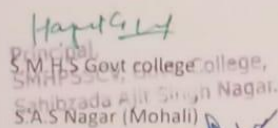 Principal
S.M.H.S Govt college College,
Sahibzada Ajit Singh Nagar.
S.A.S Nagar (Mohali)